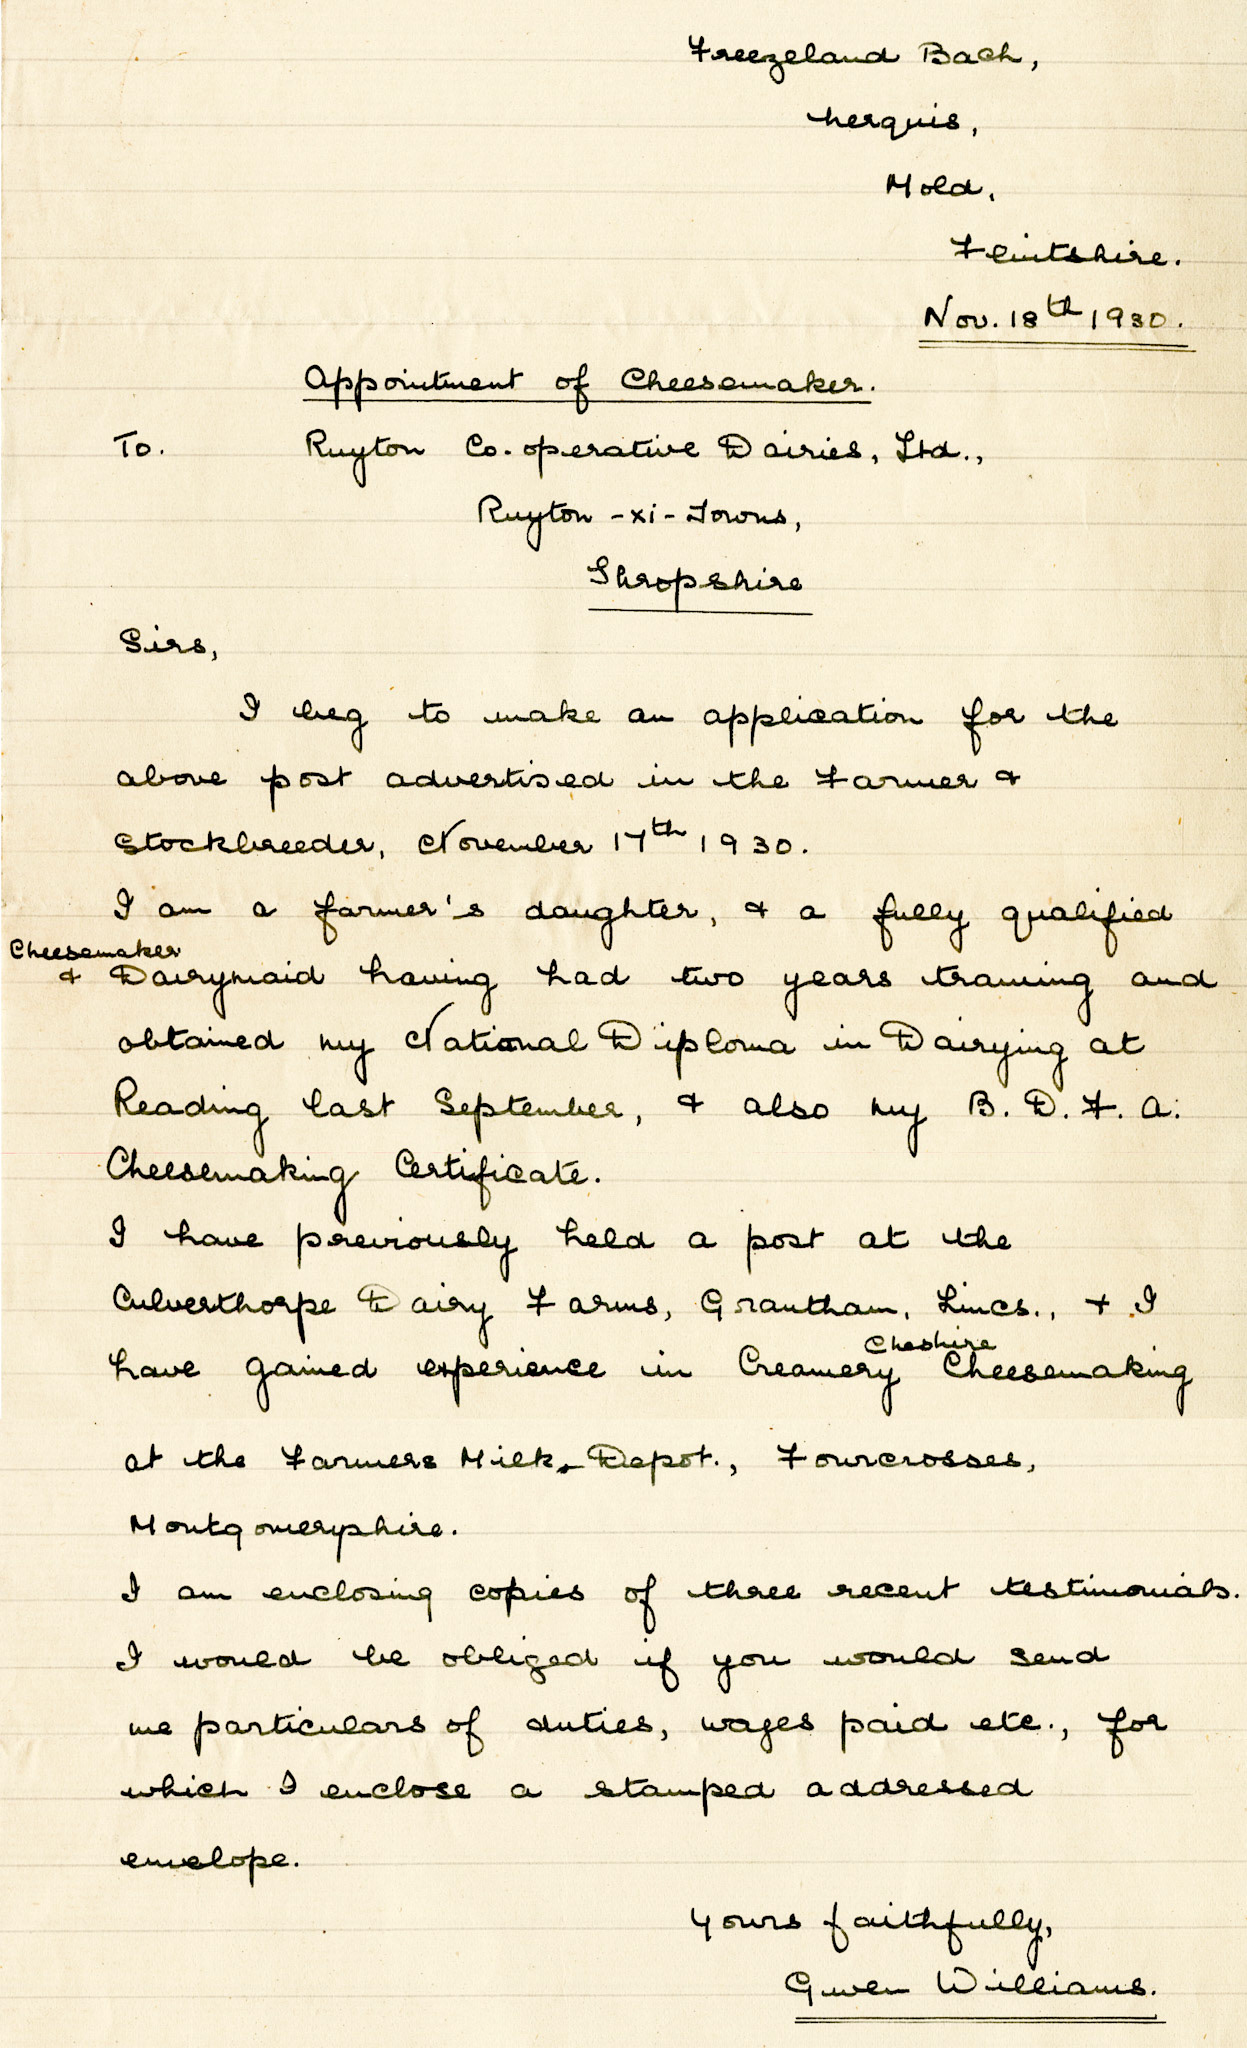 Freezeland Bach,
Nerquis,
Mold,
Flintshire.
Nov. 18th 1930.
Appointment of Cheesemaker.
To. Ruyton Co-operative Dairies, Ltd.,
Ruyton-xi-Towns,
Shropshire
Sirs,
I beg to make an application for the
above post advertised in the Farmer &
Stockbreeder, November 17th 1930.
I am a farmer's daughter, & a fully qualified
Cheesemaker
& Dairymaid having had two years training and
obtained my National Diploma in Dairying at
Reading last September, & also my B. D. F. A.
Cheesemaking Certificate.
I have previously held a post at the
Culverthorpe Dairy Farms, Grantham, Lincs., + I
Cheshire
have gained experience in Creamery Cheesemaking
at the Farmers Milk Depot., Fourcrosses,
Montgomeryshire.
I am enclosing copies of three recent testimonials.
I would be obliged if you would send
me particulars of duties, wages paid etc., for
which I enclose a stamped addressed
envelope.
Yours faithfully,
Gwen Williams.